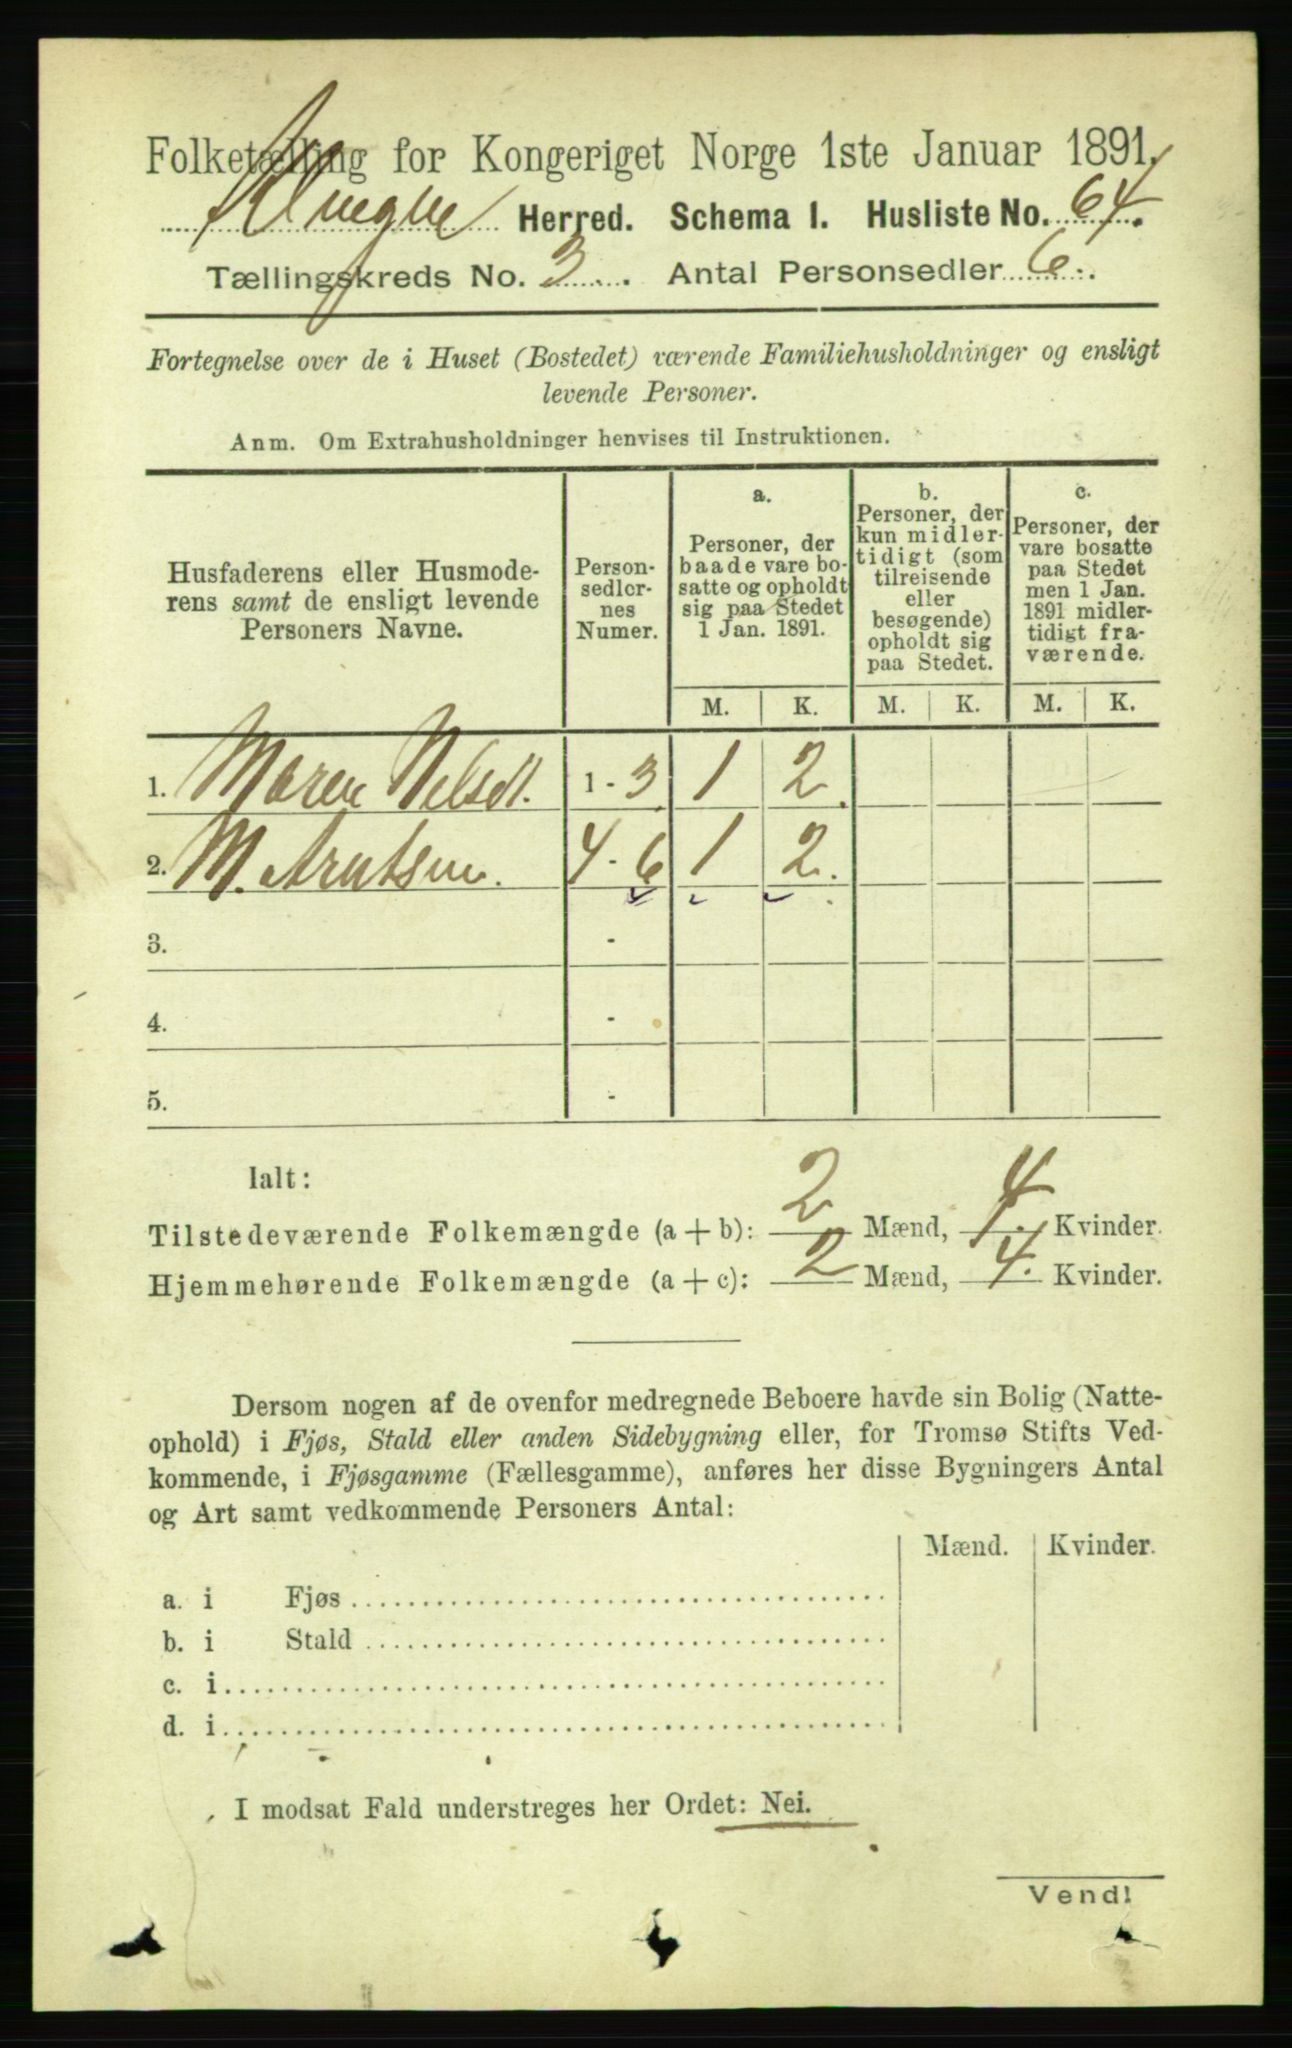 Folketælling for Kongeriget Norge 1ste Januar 1891.
Herred. Schema 1. Husliste No. 64.
Tællingskreds No. 3. Antal Personsedler 6.
Fortegnelse over de i Huset (Bostedet) værende Familiehusholdninger og ensligt
levende Personer.
Anm. Om Extrahusholdninger henvises til Instruktionen.
Husfaderens eller Husmode-
rens samt de ensligt levende
Personers Navne.
Person-
sedler-
nes
Numer.
a.
Personer, der
baade vare bo-
satte og opholdt
sig paa Stedet
1 Jan. 1891.
b.
Personer, der
kun midler-
tidigt (som
tilreisende
eller
besøgende)
opholdt sig
paa Stedet.
c.
Personer, der
vare bosatte
paa Stedet
men 1 Jan.
1891 midler-
tidigt fra-
værende.
M. K. M. K. M. K.
1. Maren Nelsd. 1 - 3 1 2.
2. M. Arntsen. 4 - 6 1 2.
3. -
4. -
5. -
Ialt:
Tilstedeværende Folkemængde (a + b): 2 Mænd, 4 Kvinder.
Hjemmehørende Folkemængde (a + c): 2 Mænd, 4. Kvinder.
Dersom nogen af de ovenfor medregnede Beboere havde sin Bolig (Natte-
ophold) i Fjøs, Stald eller anden Sidebygning eller, for Tromsø Stifts Ved-
kommende, i Fjøsgamme (Fællesgamme), anføres her disse Bygningers Antal
og Art samt vedkommende Personers Antal:
Mænd. Kvinder.
a. i Fjøs
b. i Stald
c. i
d. i
I modsat Fald understreges her Ordet: Nei.
Vend!